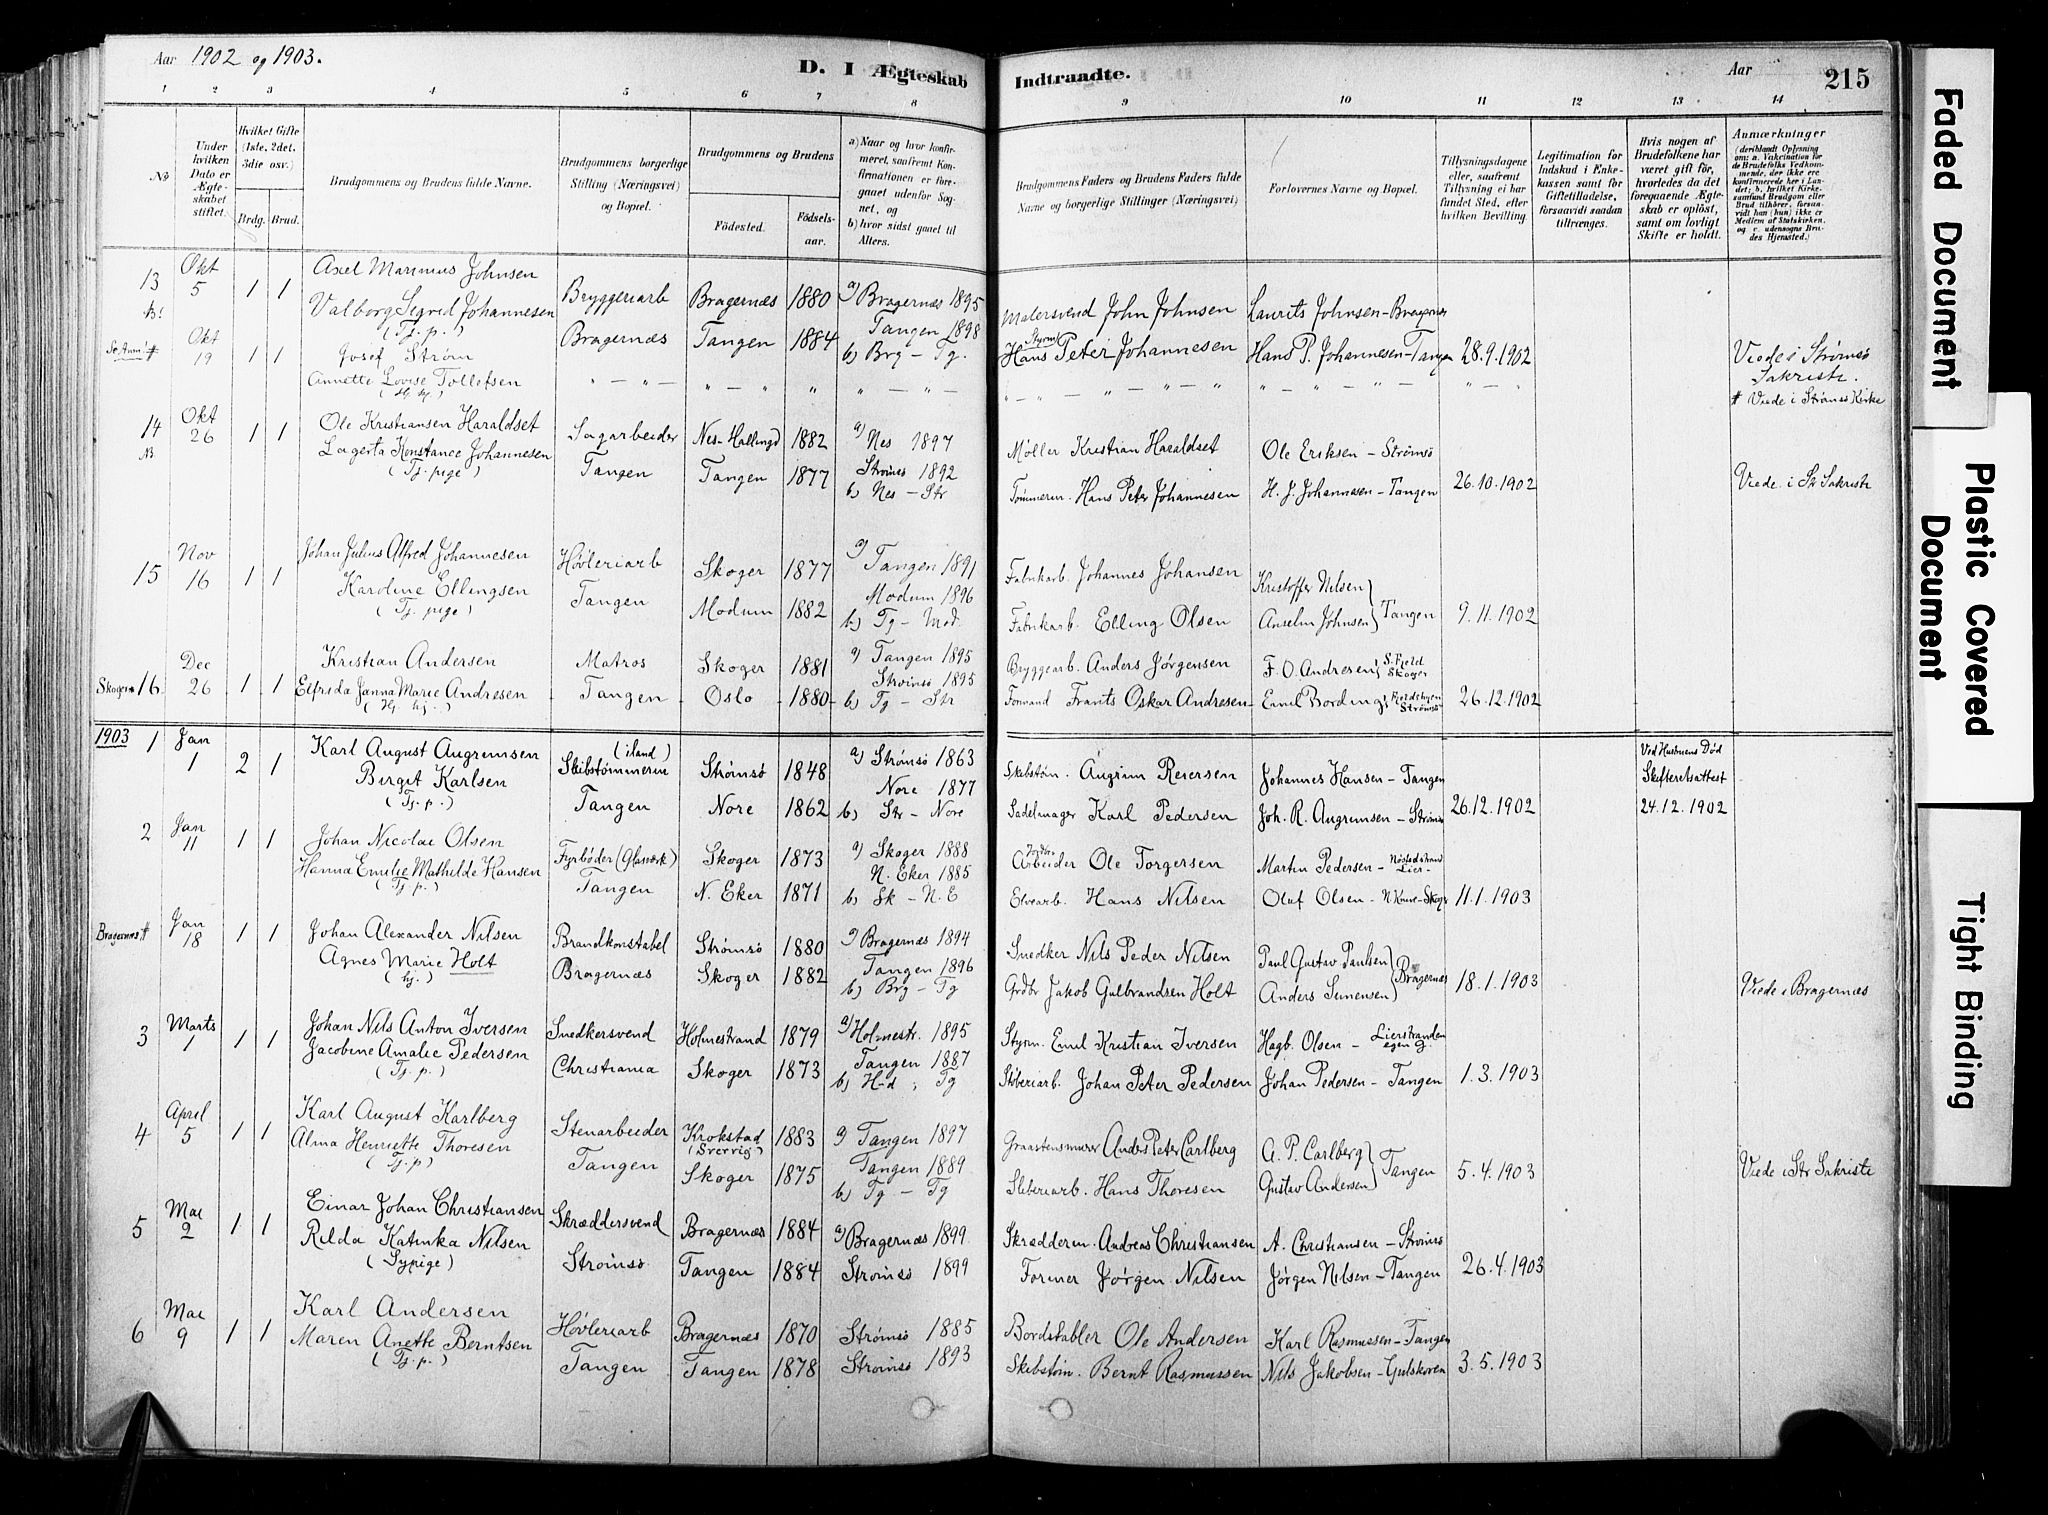 Aar 1902 og 1903.
D. I Ægteskab
Indtraadte.
Aar
215
1 2 3 4 5 6 7 8 9 10 11 12 13 14
No
Under hvilken Dato er Ægteskabet stiftet.
Hvilket Gifte (1ste, 2det, 3die osv.)
Brdg. Brud.
Brudgommens og Brudens fulde Navne.
Brudgommens borgerlige Stilling (Næringsvei) og Bopæl.
Brudgommens og Brudens
Fødested.
Fødselsaar.
a) Naar og hvor konfirmeret, saafremt Konfirmationen er foregaaet udenfor Sognet, og
b) hvor sidst gaaet til Alters.
Brudgommens Faders og Brudens Faders fulde Navne og borgerlige Stillinger (Næringsvei)
Forlovernes Navne og Bopæl.
Tillysningsdagene eller, saafremt Tillysning ei har fundet Sted, efter hvilken Bevilling.
Legitimation for Indskud i Enkekassen samt for Giftetilladelse, forsaavidt saadan tiltrænges.
Hvis nogen af Brudefolkene har været gift før, hvorledes da det foregaaende Ægteskab er opløst, samt om lovligt Skifte er holdt.
Anmærkninger
(deriblandt Oplysning om: a. Vakcination for de Brudefolks Vedkommende, der ikke ere konfirmerede her i Landet; b. hvilket Kirkesamfund Brudgom eller Brud tilhører, forsaavidt han (hun) ikke er Medlem af Statskirken, og c. udensogns Brudes Hjemsted.)
13 Okt 5 1 1 Axel Marinius Johnsen Bryggeriarb Bragernæs 1880 a) Bragernæs 1895 Malersvend John Johnsen Laurits Johnsen - Bragernæs
Valborg Sigrid Johannesen Bragernæs Tangen 1884 Tangen 1898 Styrm Hans Peter Johannesen Hans P. Johannesen - Tangen 28.9.1902 Viede i Strømsø Sakristi.
(Tj. p.) b) Brg - Tg.
# Okt 19 1 1 Josef Strøm
Annette Lovise Tollefsen # Viede i Strømsø Kirke
14 Okt 26 1 1 Ole Kristiansen Haraldset Sagarbeider Nes-Hallingd 1882 a) Nes 1897 Møller Kristian Haraldset Ole Eriksen - Strømsø
Lagerta Konstance Johannesen Tangen Tangen 1877 Strømsø 1892 Tømmerm. Hans Peter Johannesen H. J. Johannesen - Tangen 26.10.1902 Viede i St Sakristi
(Tj. pige) b) Nes - Str
15 Nov 16 1 1 Johan Julius Alfred Johannesen Høvleriarb Skoger 1877 a) Tangen 1891 Fabrikarb. Johannes Johansen Kristoffer Nilsen
Karoline Ellingsen Tangen Modum 1882 Modum 1896 Fabrikarb. Elling Olsen Anselm Johnsen } Tangen 9.11.1902
(Tj. pige) b) Tg - Mod.
Skoger 16. Dec 26 1 1 Kristian Andersen Matros Skoger 1881 a) Tangen 1895 Bryggearb. Anders Jørgensen F. O. Andresen S. Field Skoger
Elfrida Janna Marie Andresen Tangen Oslo 1880 Strømsø 1895 Formand Frants Oskar Andresen Emil Bording Strømsø 26.12.1902
(Hj. hj.) b) Tg - Str
1903 1 Jan 1 2 1 Karl August Augrimsen Skibstømmerm (iland) Strømsø 1848 a) Strømsø 1863 Skibstøm. Augrim Reiersen Johannes Hansen - Tangen Ved Hustruens Død Skifteretsattest
Birgit Karlsen Tangen Nore 1862 Nore 1877 Sadelmager Karl Pedersen Joh. R. Augrimsen - Strømsø 26.12.1902 24.12.1902
(Tj. p.) b) Str - Nore
2 Jan 11 1 1 Johan Nicolai Olsen Fyrbøder (Glasværk) Skoger 1873 a) Skoger 1888 Arbeider Ole Torgersen Martin Pedersen - Nøstedstrand Lier
Hanna Emilie Mathilde Hansen Tangen N. Eker 1871 N. Eker 1885 Elvearb. Hans Nilsen Oluf Olsen - Skoger 11.1.1903
(Tj. p.) b) Sk - N. E
Bragernes # Jan 18 1 1 Johan Alexander Nilsen Brandkonstabel Strømsø 1880 a) Bragernæs 1894 Snedker Nils Peder Nilsen Paul Gustav Paulsen
Agnes Marie Holt Bragernæs Skoger 1882 Tangen 1896 Grdbr Jakob Gulbrandsen Holt Anders Simensen } Bragernæs 18.1.1903 Viede i Bragernæs
(hj.) b) Brg - Tg
3 Marts 1 1 1 Johan Nils Anton Iversen Snedkersvend Holmestrand 1879 a) Holmestr. 1895 Styrm. Emil Kristian Iversen Hagb. Olsen - Lierstranden
Jacobine Amalie Pedersen Christiania Skoger 1873 Tangen 1887 Sliberiarb. Johan Peter Pedersen Johan Pedersen - Tangen 1.3.1903
(Tj. p.) b) H-d, Tg
4 April 5 1 1 Karl August Karlberg Stenarbeider Krokstad (Sverrig) 1883 a) Tangen 1897 Graastensmurer Anders Peter Carlberg A. P. Carlberg
Alma Henriette Thoresen Tangen Skoger 1875 Tangen 1889 Sliberiarb. Hans Thoresen Gustav Andersen } Tangen 5.4.1903 Viede i Str Sakristi
(Tj. p) b) Tg - Tg
5 Mai 2 1 1 Einar Johan Christiansen Skræddersvend Bragernæs 1884 a) Bragernæs 1899 Skrædderm. Andreas Christiansen A. Christiansen - Strømsø
Rilda Katinka Nilsen Strømsø Tangen 1884 Strømsø 1899 Former Jørgen Nilsen Jørgen Nilsen - Tangen 26.4.1903
(Sypige)
6 Mai 9 1 1 Karl Andersen Høvleriarb Bragernæs 1870 Strømsø 1885 Bordstabler Ole Andersen Karl Rasmussen - Tangen
Maren Anette Berntsen Tangen Tangen 1878 Strømsø 1893 Skibstøm. Bernt Rasmussen Nils Jakobsen - Gulskoven 3.5.1903
(Tj. p.)
Faded Document
Plastic Covered Document
Tight Binding